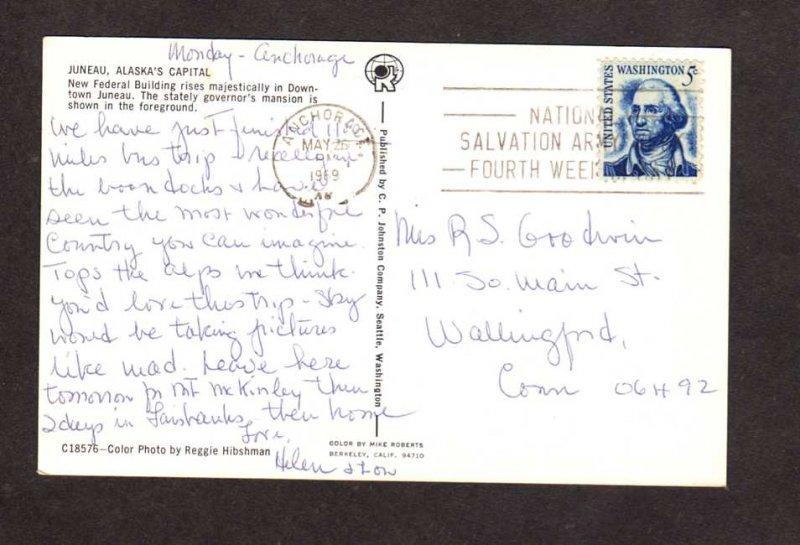 Monday - Anchorage
JUNEAU, ALASKA'S CAPITAL
New Federal Building rises majestically in Down-
town Juneau. The stately governor's mansion is
shown in the foreground.
We have just finished 11
miles bus trip +
the boondocks & have
seen the most wonderful
Country you can imagine.
Tops the alps we think.
You'd love this trip - Sky
would be taking pictures
like mad. Leave here
tomorrow for Mt McKinley then
2 days in Fairbanks, then home
Love,
Helen & Lou
C18576—Color Photo by Reggie Hibshman
Published by C. P. Johnston Company, Seattle, Washington
COLOR BY MIKE ROBERTS
BERKELEY, CALIF. 94710
ANCHORAGE
MAY 26
1969
NATION
SALVATION AR
FOURTH WEEK
UNITED STATES
WASHINGTON 5c
Mrs R. S. Goodwin
111 So. Main St.
Wallingford,
Conn 06492